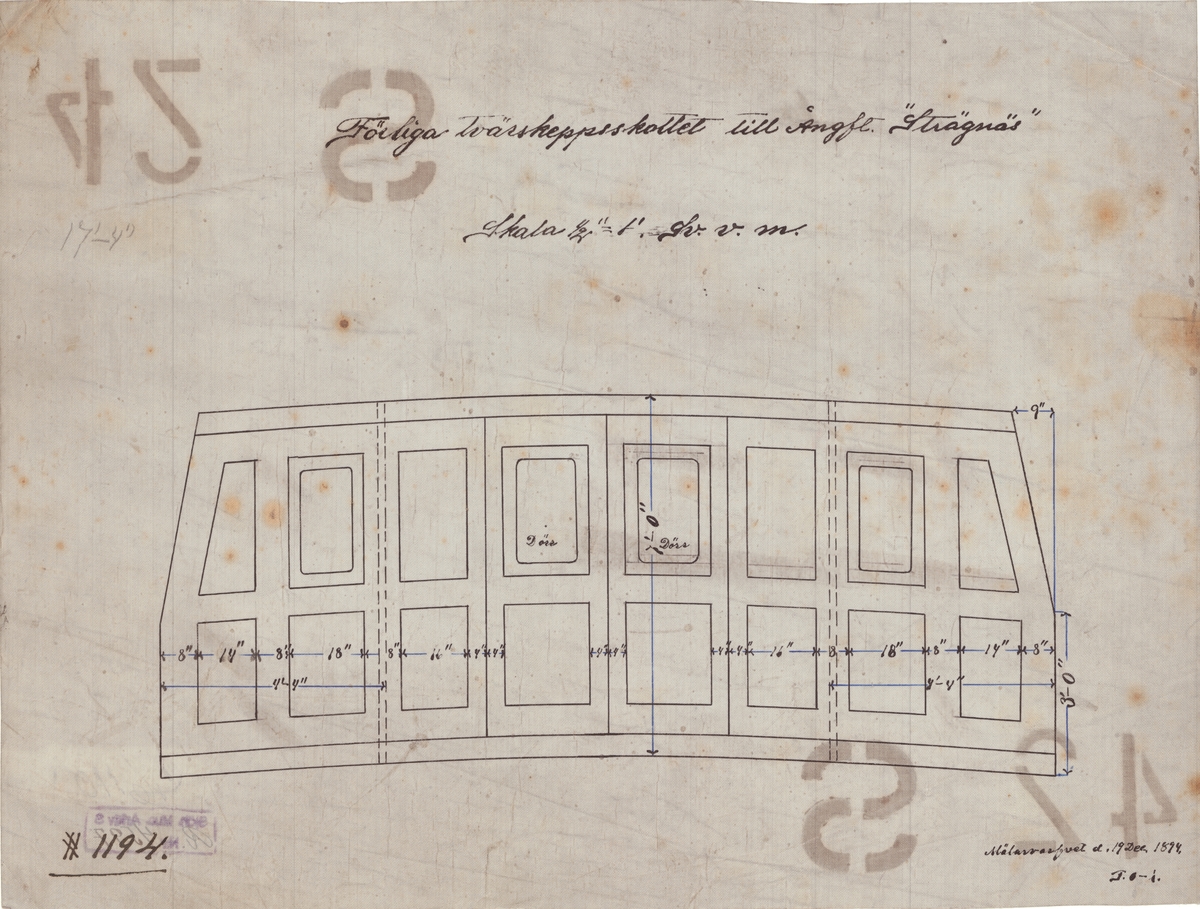 42 S
Förliga tvärskeppsskottet till Ångft. "Strägnäs"
17'-4"
Skala 1/2" = 1'. Sv. v. m.
9"
7'-0"
Dörr Dörr
8" 14" 8" 18" 8" 16" 4" 4" 4" 4" 4" 4" 16" 8 18" 8" 14" 8"
7'-4" 7'-4"
3'-0"
S 42
# 1194.
Mälarvarfvet d. 19 Dec. 1894.